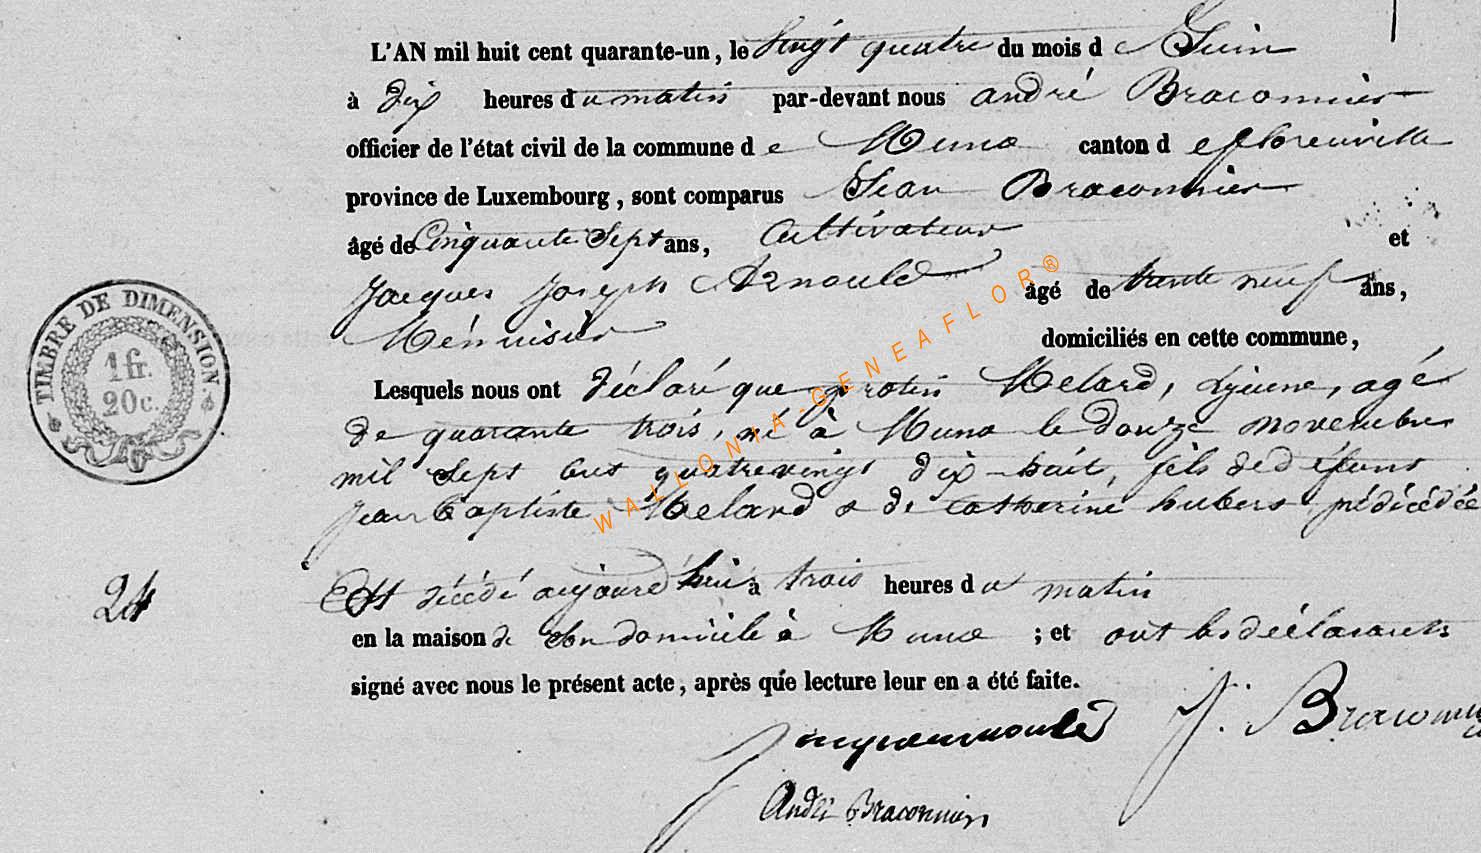 L'AN mil huit cent quarante-un, le Vingt quatre du mois de Juin
à dix heures du matin par-devant nous andré Braconnier
officier de l'état civil de la commune de Muno canton de florenville
province de Luxembourg, sont comparus Jean Braconnier
âgé de Cinquante Sept ans, Cultivateur et
Jacques Joseph Arnould âgé de trente neuf ans,
Ménuisier domiciliés en cette commune,
Lesquels nous ont déclaré que Melard, agé
de quarante trois, né à Muno le douze novembre
mil sept cent quatrevingt dix-huit, fils de défunt
jean baptiste Melard & de Catherine hubert prédécédée
Est décédé aujourd'hui à trois heures du matin
en la maison de son domicile à Muno ; et ont les déclarants
signé avec nous le présent acte, après que lecture leur en a été faite.
J. Braconnier
André Braconnier
24
TIMBRE DE DIMENSION
1 fr.
20 c.
WALLONIA-GENEAFLOR®